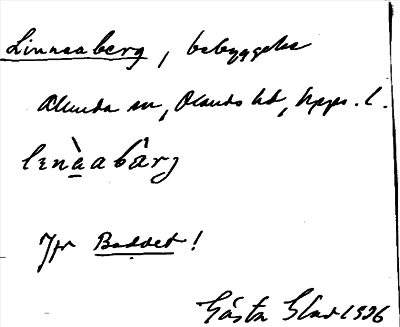 Linnaaberg, bebyggelse
Alunda sn, Olands hd, Upps. l.
lenàabârj
Jfr Baddet!
Gösta Glad 1926